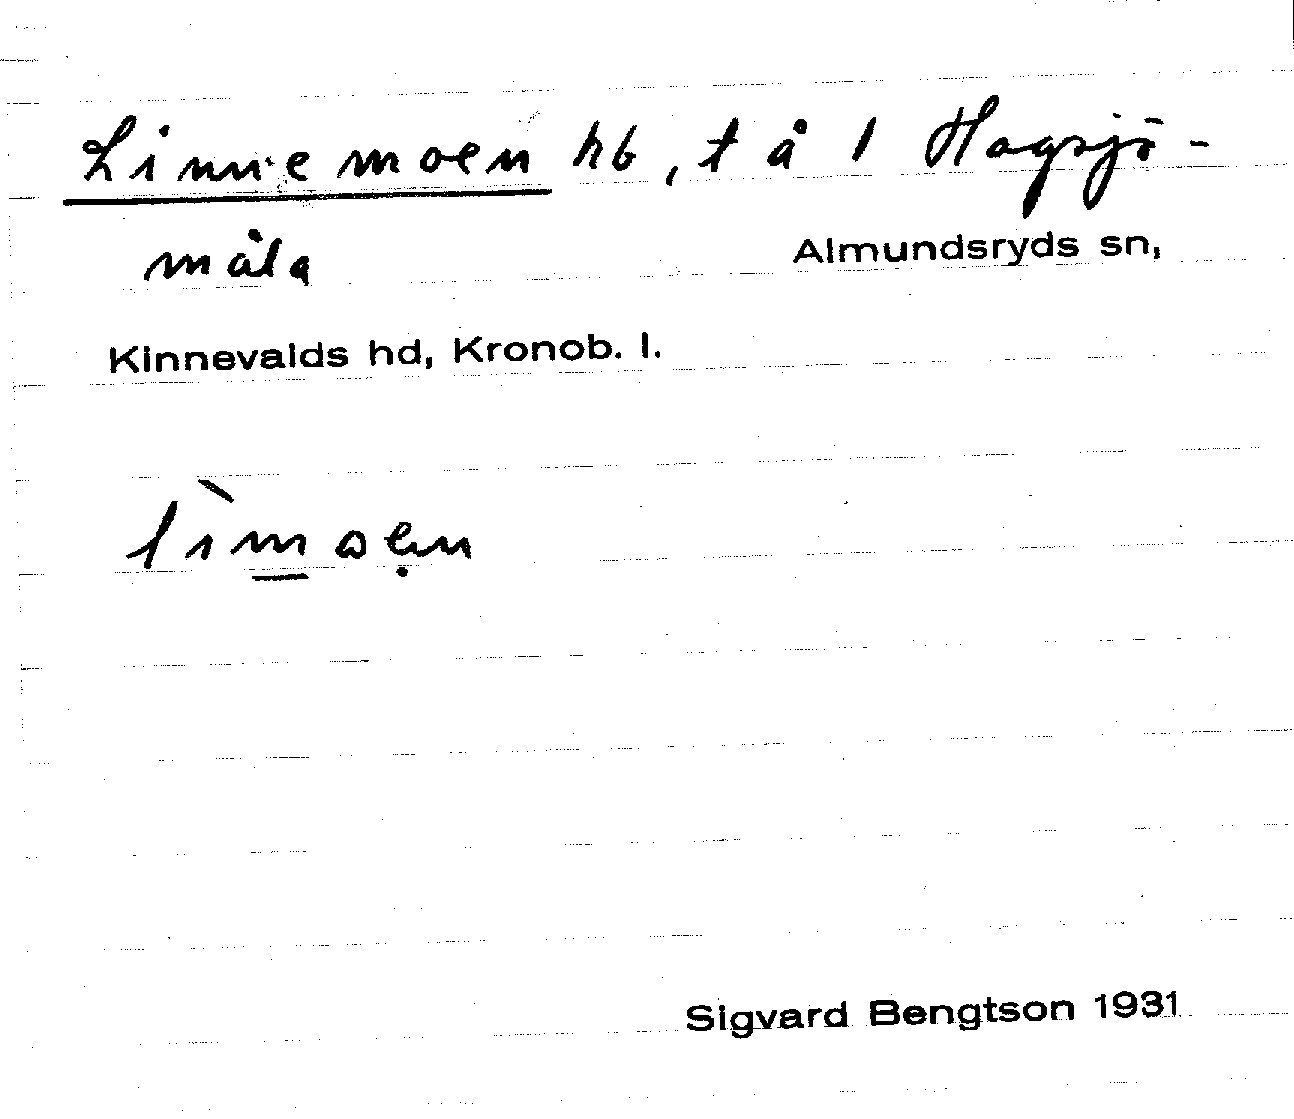 Linnemoen hb, t å 1 Hagsjö-
måla
Almundsryds sn,
Kinnevalds hd, Kronob. l.
lìm̲oẹn
Sigvard Bengtson 1931